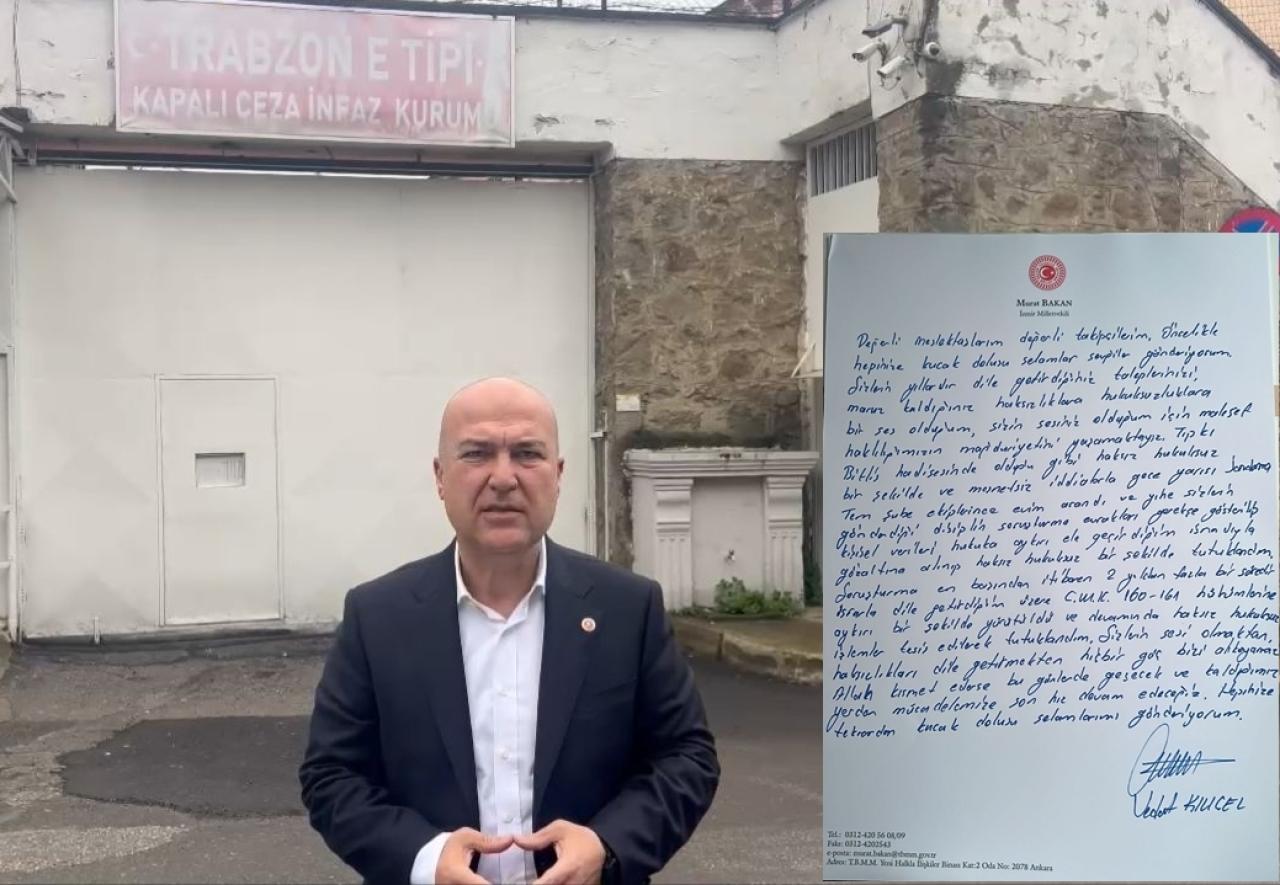 TRABZON E TİPİ
KAPALI CEZA İNFAZ KURUMU
Murat BAKAN
İzmir Milletvekili
Değerli meslektaşlarım değerli takipçilerim. Öncelikle
hepinize kucak dolusu selamlar sevgiler gönderiyorum.
Sizlerin yıllardır dile getirdiğiniz taleplerinizi,
maruz kaldığınız haksızlıklara hukuksuzluklara
bir ses olduğum, sizin sesiniz olduğum için malesef
haklılığımızın mağduriyetini yaşamaktayız. Tıpkı
Bitlis hadisesinde olduğu gibi haksız hukuksuz
bir şekilde ve mesnetsiz iddialarla gece yarısı Jandarma
Tem şube ekiplerince evim arandı ve yine sizlerin
gönderdiği disiplin soruşturma evrakları gerekçe gösterilip
kişisel verileri hukuka aykırı ele geçirdiğim isnadıyla
gözaltına alınıp haksız hukuksuz bir şekilde tutuklandım.
Soruşturma en başından itibaren 2 yıldan fazla bir süredir
ısrarla dile getirdiğim üzere C.M.K. 160-161 hükümlerine
aykırı bir şekilde yürütüldü ve devamında haksız hukuksuz
işlemler tesis edilerek tutuklandım. Sizlerin sesi olmaktan,
haksızlıkları dile getirmekten hiçbir güç bizi alıkoyamaz
Allah kısmet ederse bu günlerde geçecek ve kaldığımız
yerden mücadelemize son hız devam edeceğiz. Hepinize
tekrardan kucak dolusu selamlarımı gönderiyorum.
Vedat KILIÇEL
Tel.: 0312-420 56 08/09
Faks: 0312-4202543
e-posta: murat.bakan@tbmm.gov.tr
Adres: T.B.M.M. Yeni Halkla İlişkiler Binası Kat:2 Oda No: 2078 Ankara